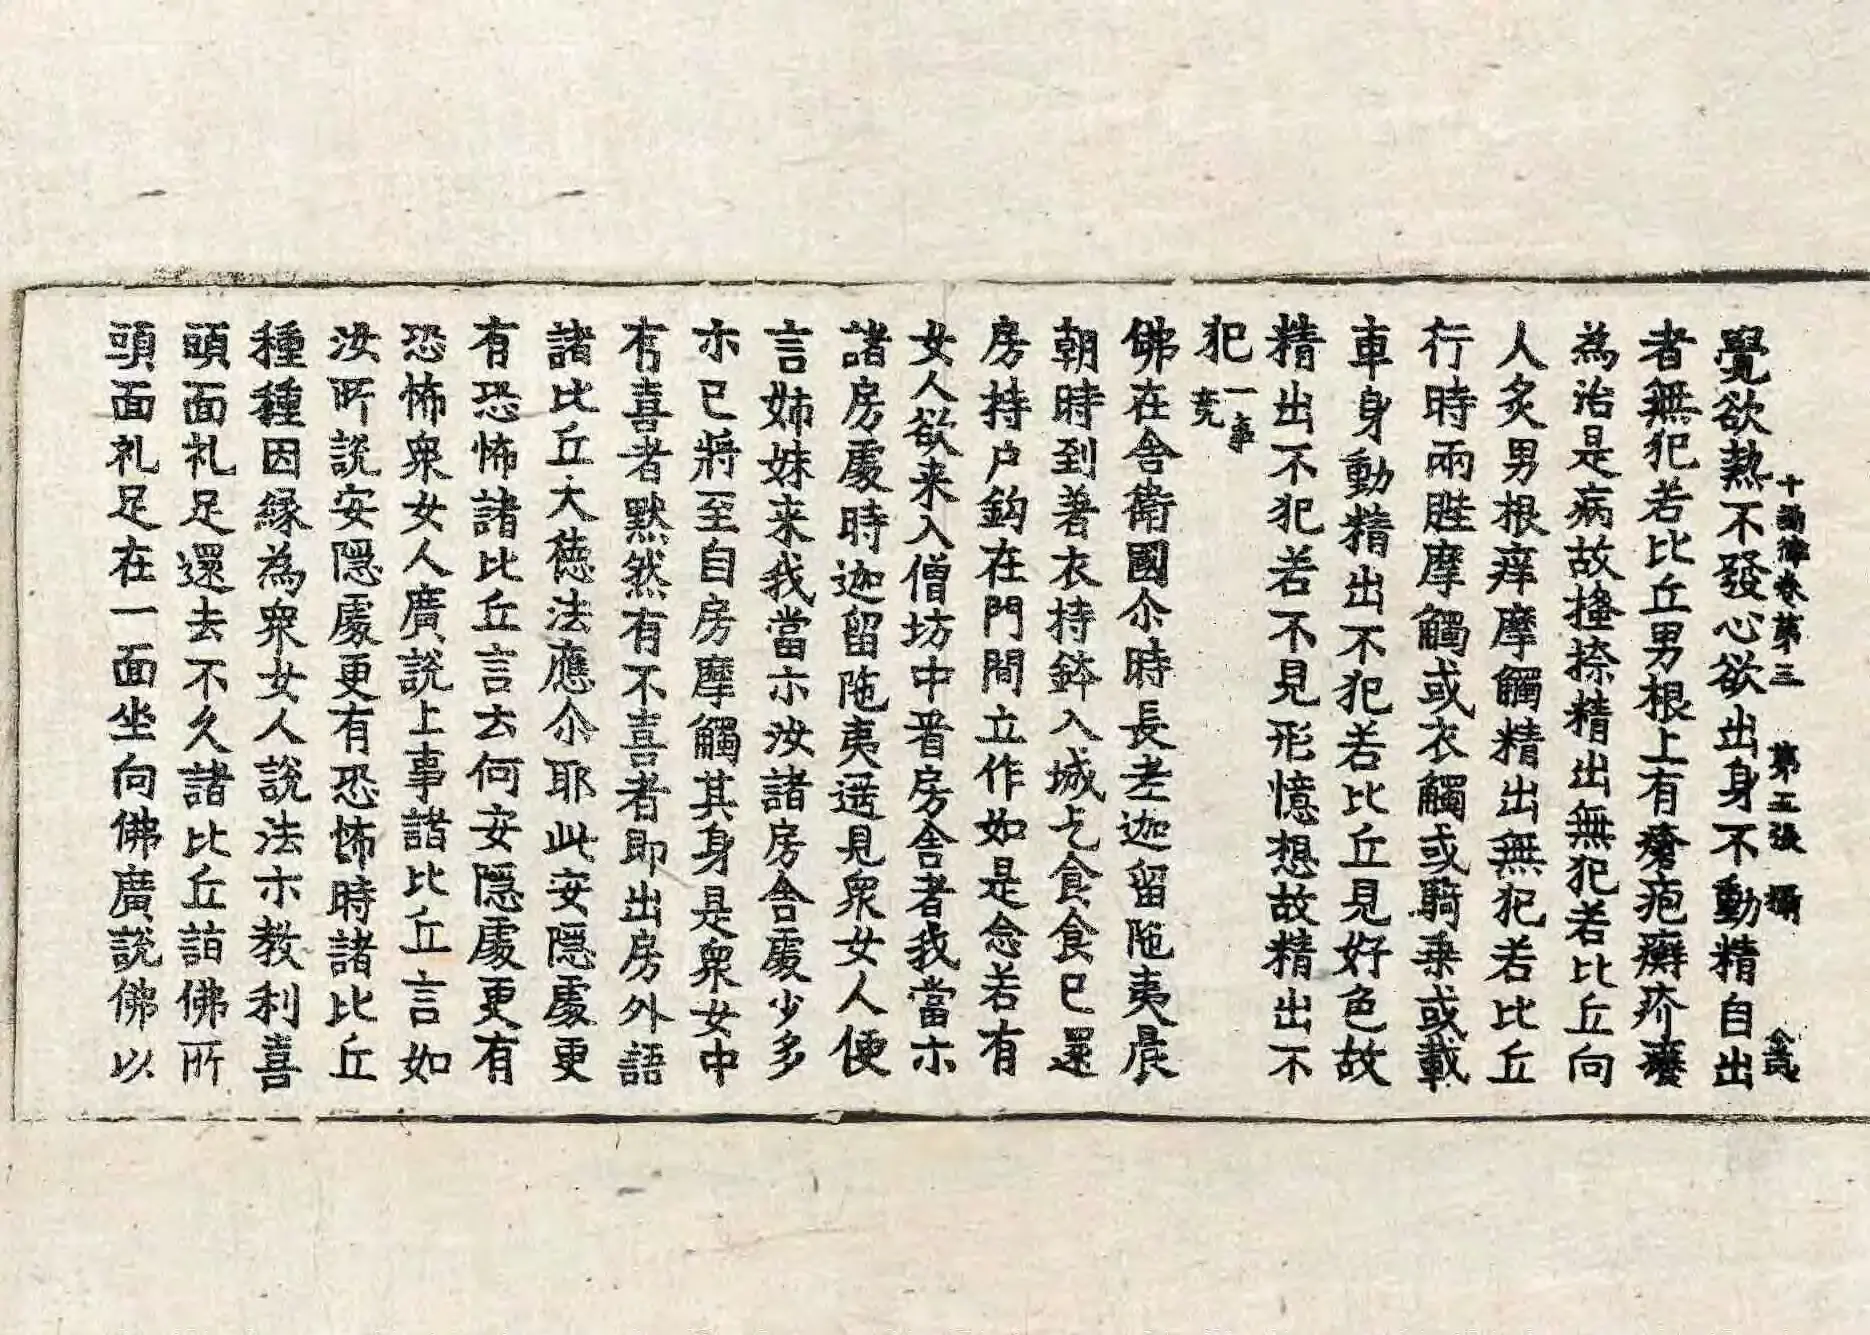 十誦律卷第三 第五張 攝
覺欲熱不發心欲出身不動精自出
者無犯若比丘男根上有瘡疱癬疥癢
為治是病故搔捺精出無犯若比丘向
人炙男根痒摩觸精出無犯若比丘
行時兩䏶摩觸或衣觸或騎乘或載
車身動精出不犯若比丘見好色故
精出不犯若不見形憶想故精出不
犯一事竟
佛在舍衛國尒時長老迦留陁夷晨
朝時到著衣持鉢入城乞食食已還
房持户鈎在門間立作如是念若有
女人欲来入僧坊中看房舍者我當示
諸房處時迦留陁夷遥見衆女人便
言姉妹来我當示汝諸房舍處少多
示已將至自房摩觸其身是衆女中
有喜者默然有不喜者即出房外語
諸比丘大徳法應尒耶此安隱處更
有恐怖諸比丘言云何安隱處更有
恐怖衆女人廣說上事諸比丘言如
汝所說安隱處更有恐怖時諸比丘
種種因緣為衆女人說法示教利喜
頭面礼足還去不久諸比丘詣佛所
頭面礼足在一面坐向佛廣說佛以